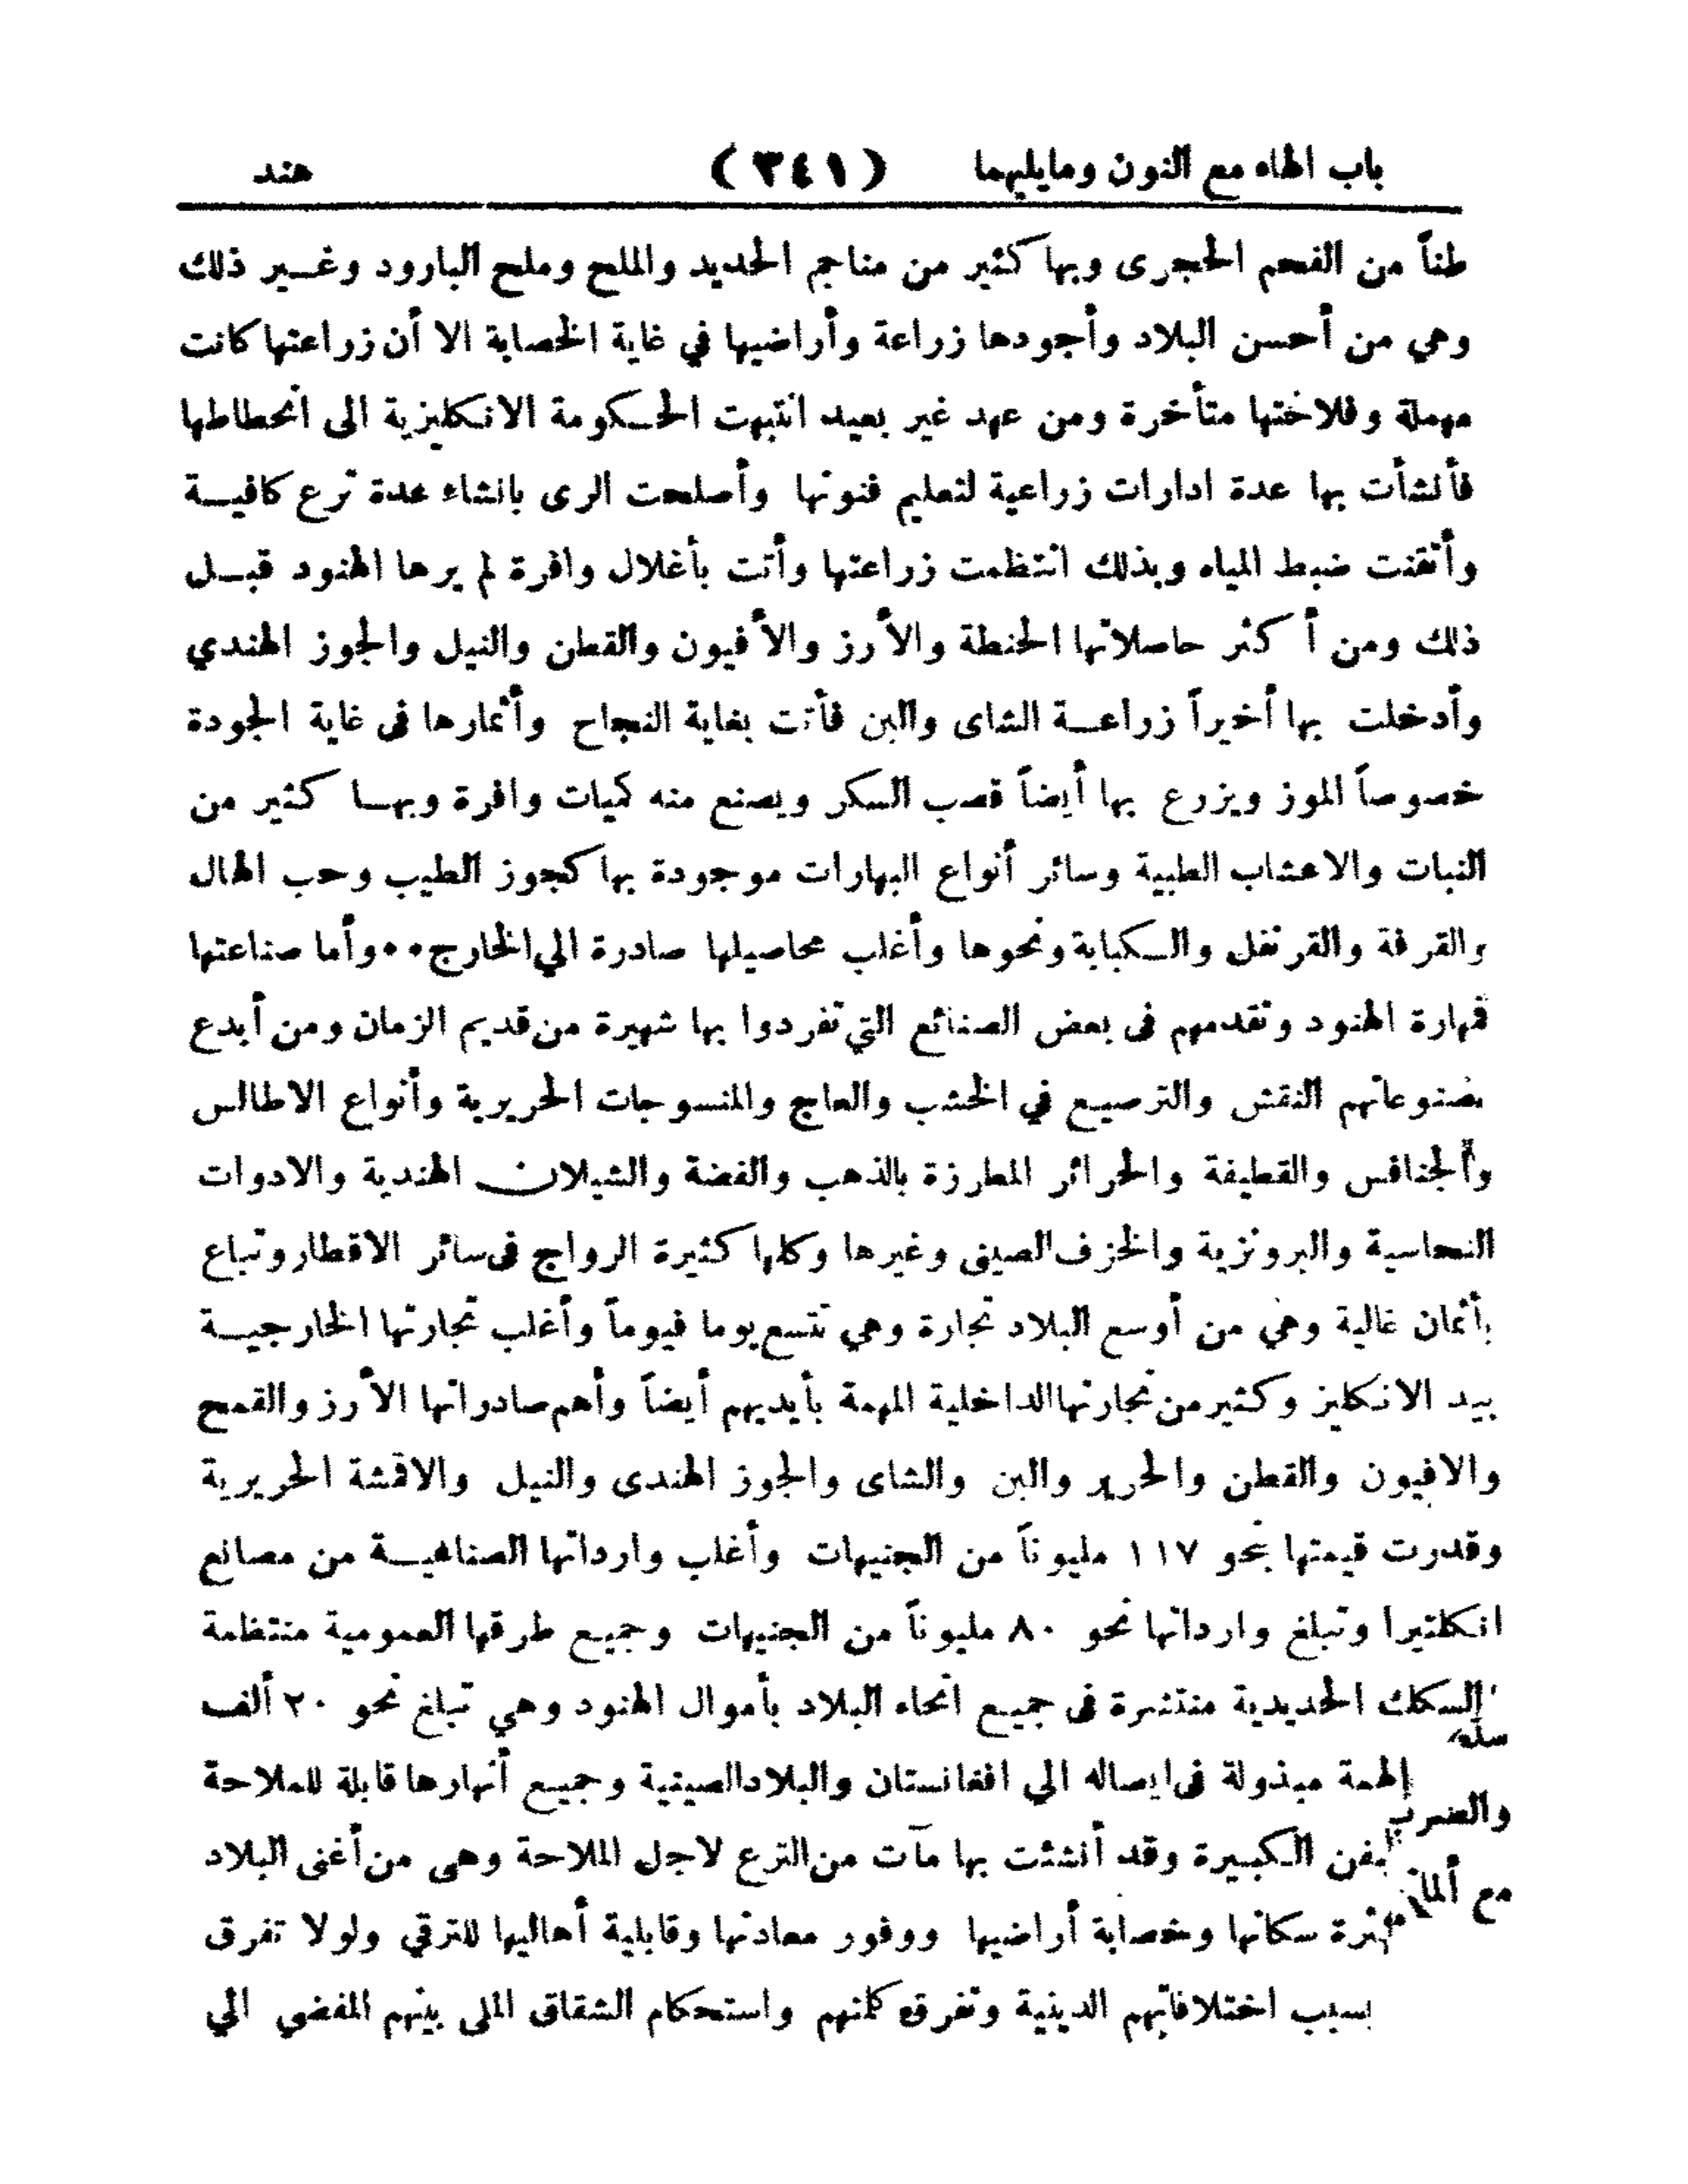 باب الهاء مع النون ومايليهما (٣٤١) هند
طناً من الفحم الحجرى وبها كثير من مناجم الحديد والملح وملح البارود وغير ذلك
وهي من أحسن البلاد وأجودها زراعة وأراضيها في غاية الخصابة الا أن زراعتها كانت
مهملة وفلاحتها متأخرة ومن عهد غير بعيد انتبهت الحكومة الانكليزية الى انحطاطها
فأنشأت بها عدة ادارات زراعية لتعليم فنونها وأصلحت الرى بانشاء عدة ترع كافية
وأتقنت ضبط المياه وبذلك انتظمت زراعتها وأتت بأغلال وافرة لم يرها الهنود قبل
ذلك ومن أكثر حاصلاتها الحنطة والأرز والأفيون والقطن والنيل والجوز الهندي
وأدخلت بها أخيراً زراعة الشاى والبن فأتت بغاية النجاح وأثمارها فى غاية الجودة
خصوصاً الموز ويزرع بها أيضاً قصب السكر ويصنع منه كميات وافرة وبها كثير من
النبات والاعشاب الطبية وسائر أنواع البهارات موجودة بها كجوز الطيب وحب الهال
والقرفة والقرنفل والكبابة ونحوها وأغلب محاصيلها صادرة الي الخارج٠٠وأما صناعتها
فمهارة الهنود وتقدمهم فى بعض الصنائع التي تفردوا بها شهيرة من قديم الزمان ومن أبدع
مصنوعاتهم النقش والترصيع في الخشب والعاج والمنسوجات الحريرية وأنواع الاطالس
والجنافس والقطيفة والحرائر المطرزة بالذهب والفضة والشيلان الهندية والادوات
النحاسية والبرونزية والخزف الصينى وغيرها وكلها كثيرة الرواج فى سائر الاقطار وتباع
بأثمان غالية وهي من أوسع البلاد تجارة وهي تتسع يوما فيوماً وأغلب تجارتها الخارجية
بيد الانكليز وكثير من تجارتها الداخلية المهمة بأيديهم أيضاً وأهم صادراتها الأرز والقمح
والافيون والقطن والحرير والبن والشاى والجوز الهندى والنيل والاقمشة الحريرية
وقدرت قيمتها بنحو ١١٧ مليوناً من الجنيهات وأغلب وارداتها الصناعية من مصانع
انكلتيرا وتبلغ وارداتها نحو ٨٠ مليوناً من الجنيهات وجميع طرقها العمومية منتظمة
السكك الحديدية منتشرة فى جميع انحاء البلاد بأموال الهنود وهي تبلغ نحو ٢٠ ألف
الهمة مبذولة فى ايصاله الي افغانستان والبلاد الصينية وجميع أنهارها قابلة للملاحة
والضرب
الكبيرة وقد أنشئت بها مآت من الترع لاجل الملاحة وهى من أغنى البلاد
مع
سكانها وخصابة أراضيها ووفور معادنها وقابلية أهاليها للترقي ولولا تفرق
بسبب اختلافاتهم الدينية وتفرق كلمتهم واستحكام الشقاق الملى بينهم المفضي الي